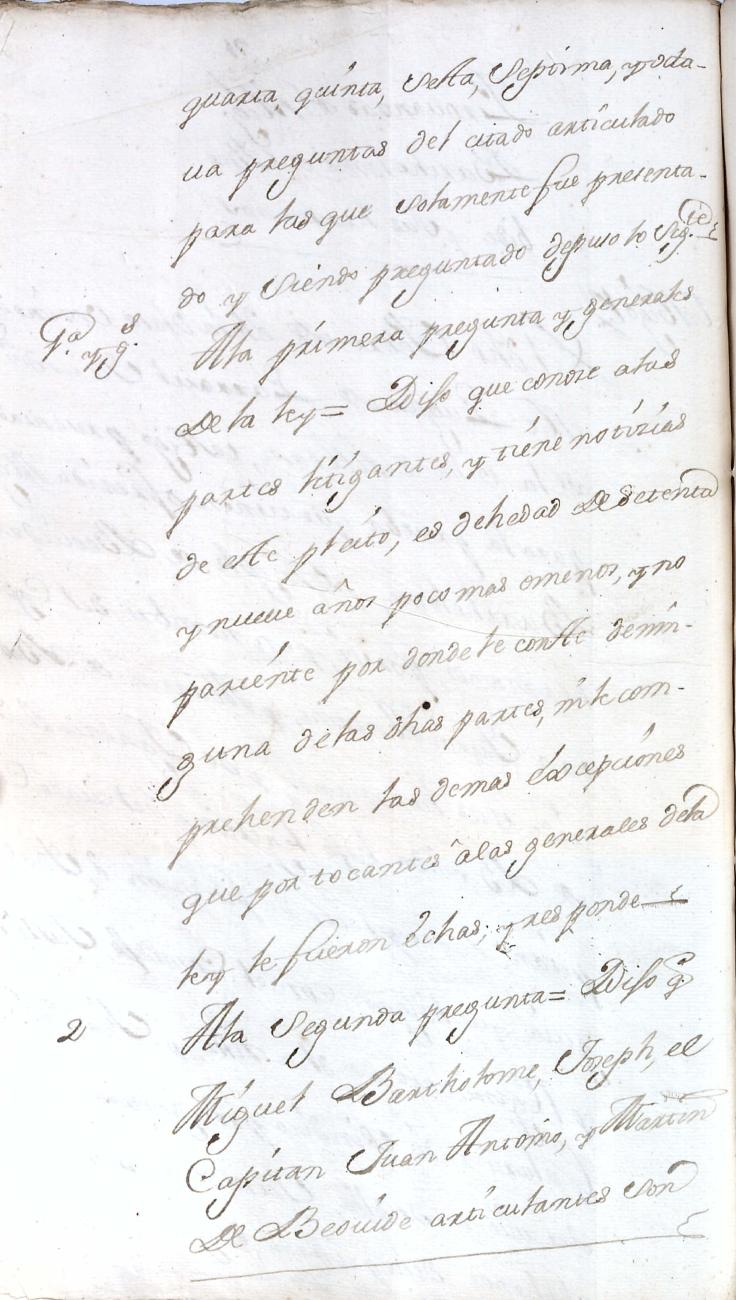 quarta, quinta, sesta, septima, y octa-
va preguntas del citado articulado
para las que solamente fue presenta-
do y siendo preguntado depuso lo sig.te
1.a y g.s
A la primera pregunta y generales
de la ley = Dijo que conose a las
partes litigantes, y tiene notizias
de este pleito, es de hedad de setenta
y nueve años poco mas o menos, y no
pariente por donde le conste de nin-
guna de las dhas partes, ni le com-
prehenden las demas excepciones
que por tocantes a las generales de la
ley le fueron echas; y responde
2
A la segunda pregunta = Dijo q.e
Miguel Bartholome, Joseph, el
Capitan Juan Antonio, y Martin
de Beovide articulantes son